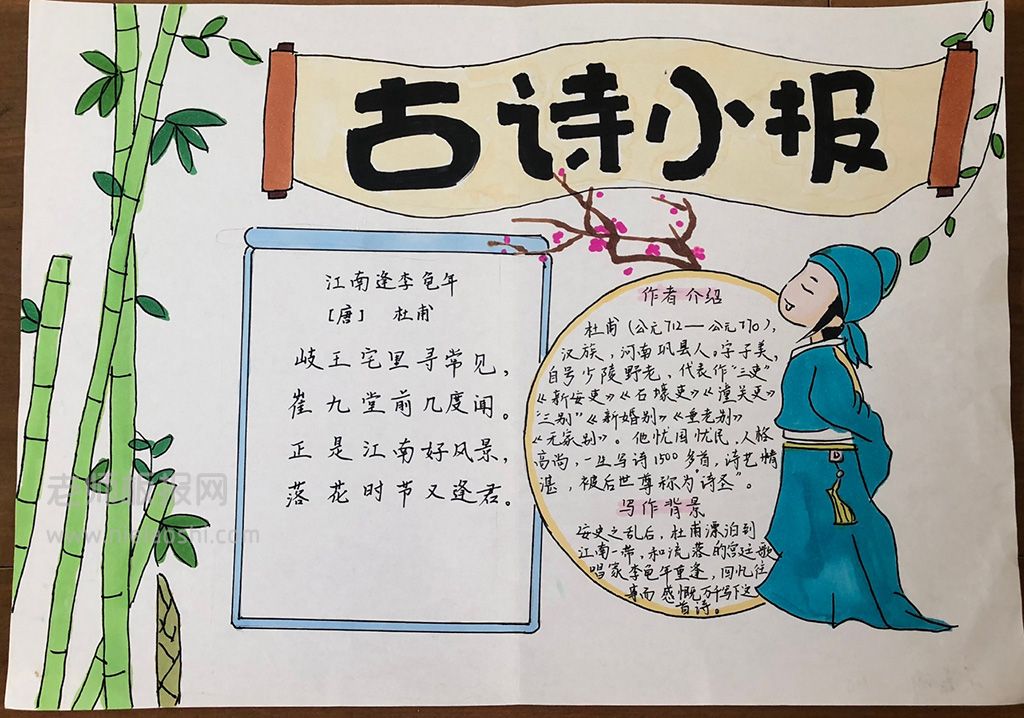 古诗小报
江南逢李龟年
[唐] 杜甫
岐王宅里寻常见，
崔九堂前几度闻。
正是江南好风景，
落花时节又逢君。
作者介绍
杜甫（公元712—公元770），
汉族，河南巩县人。字子美，
自号少陵野老，代表作“三吏”
《新安吏》《石壕吏》《潼关吏》
“三别”《新婚别》《垂老别》
《无家别》。他忧国忧民，人格
高尚，一生写诗1500多首，诗艺精
湛，被后世尊称为“诗圣”。
写作背景
安史之乱后，杜甫漂泊到
江南一带，和流落的宫廷歌
唱家李龟年重逢，回忆往
事而感慨万千写下这
首诗。